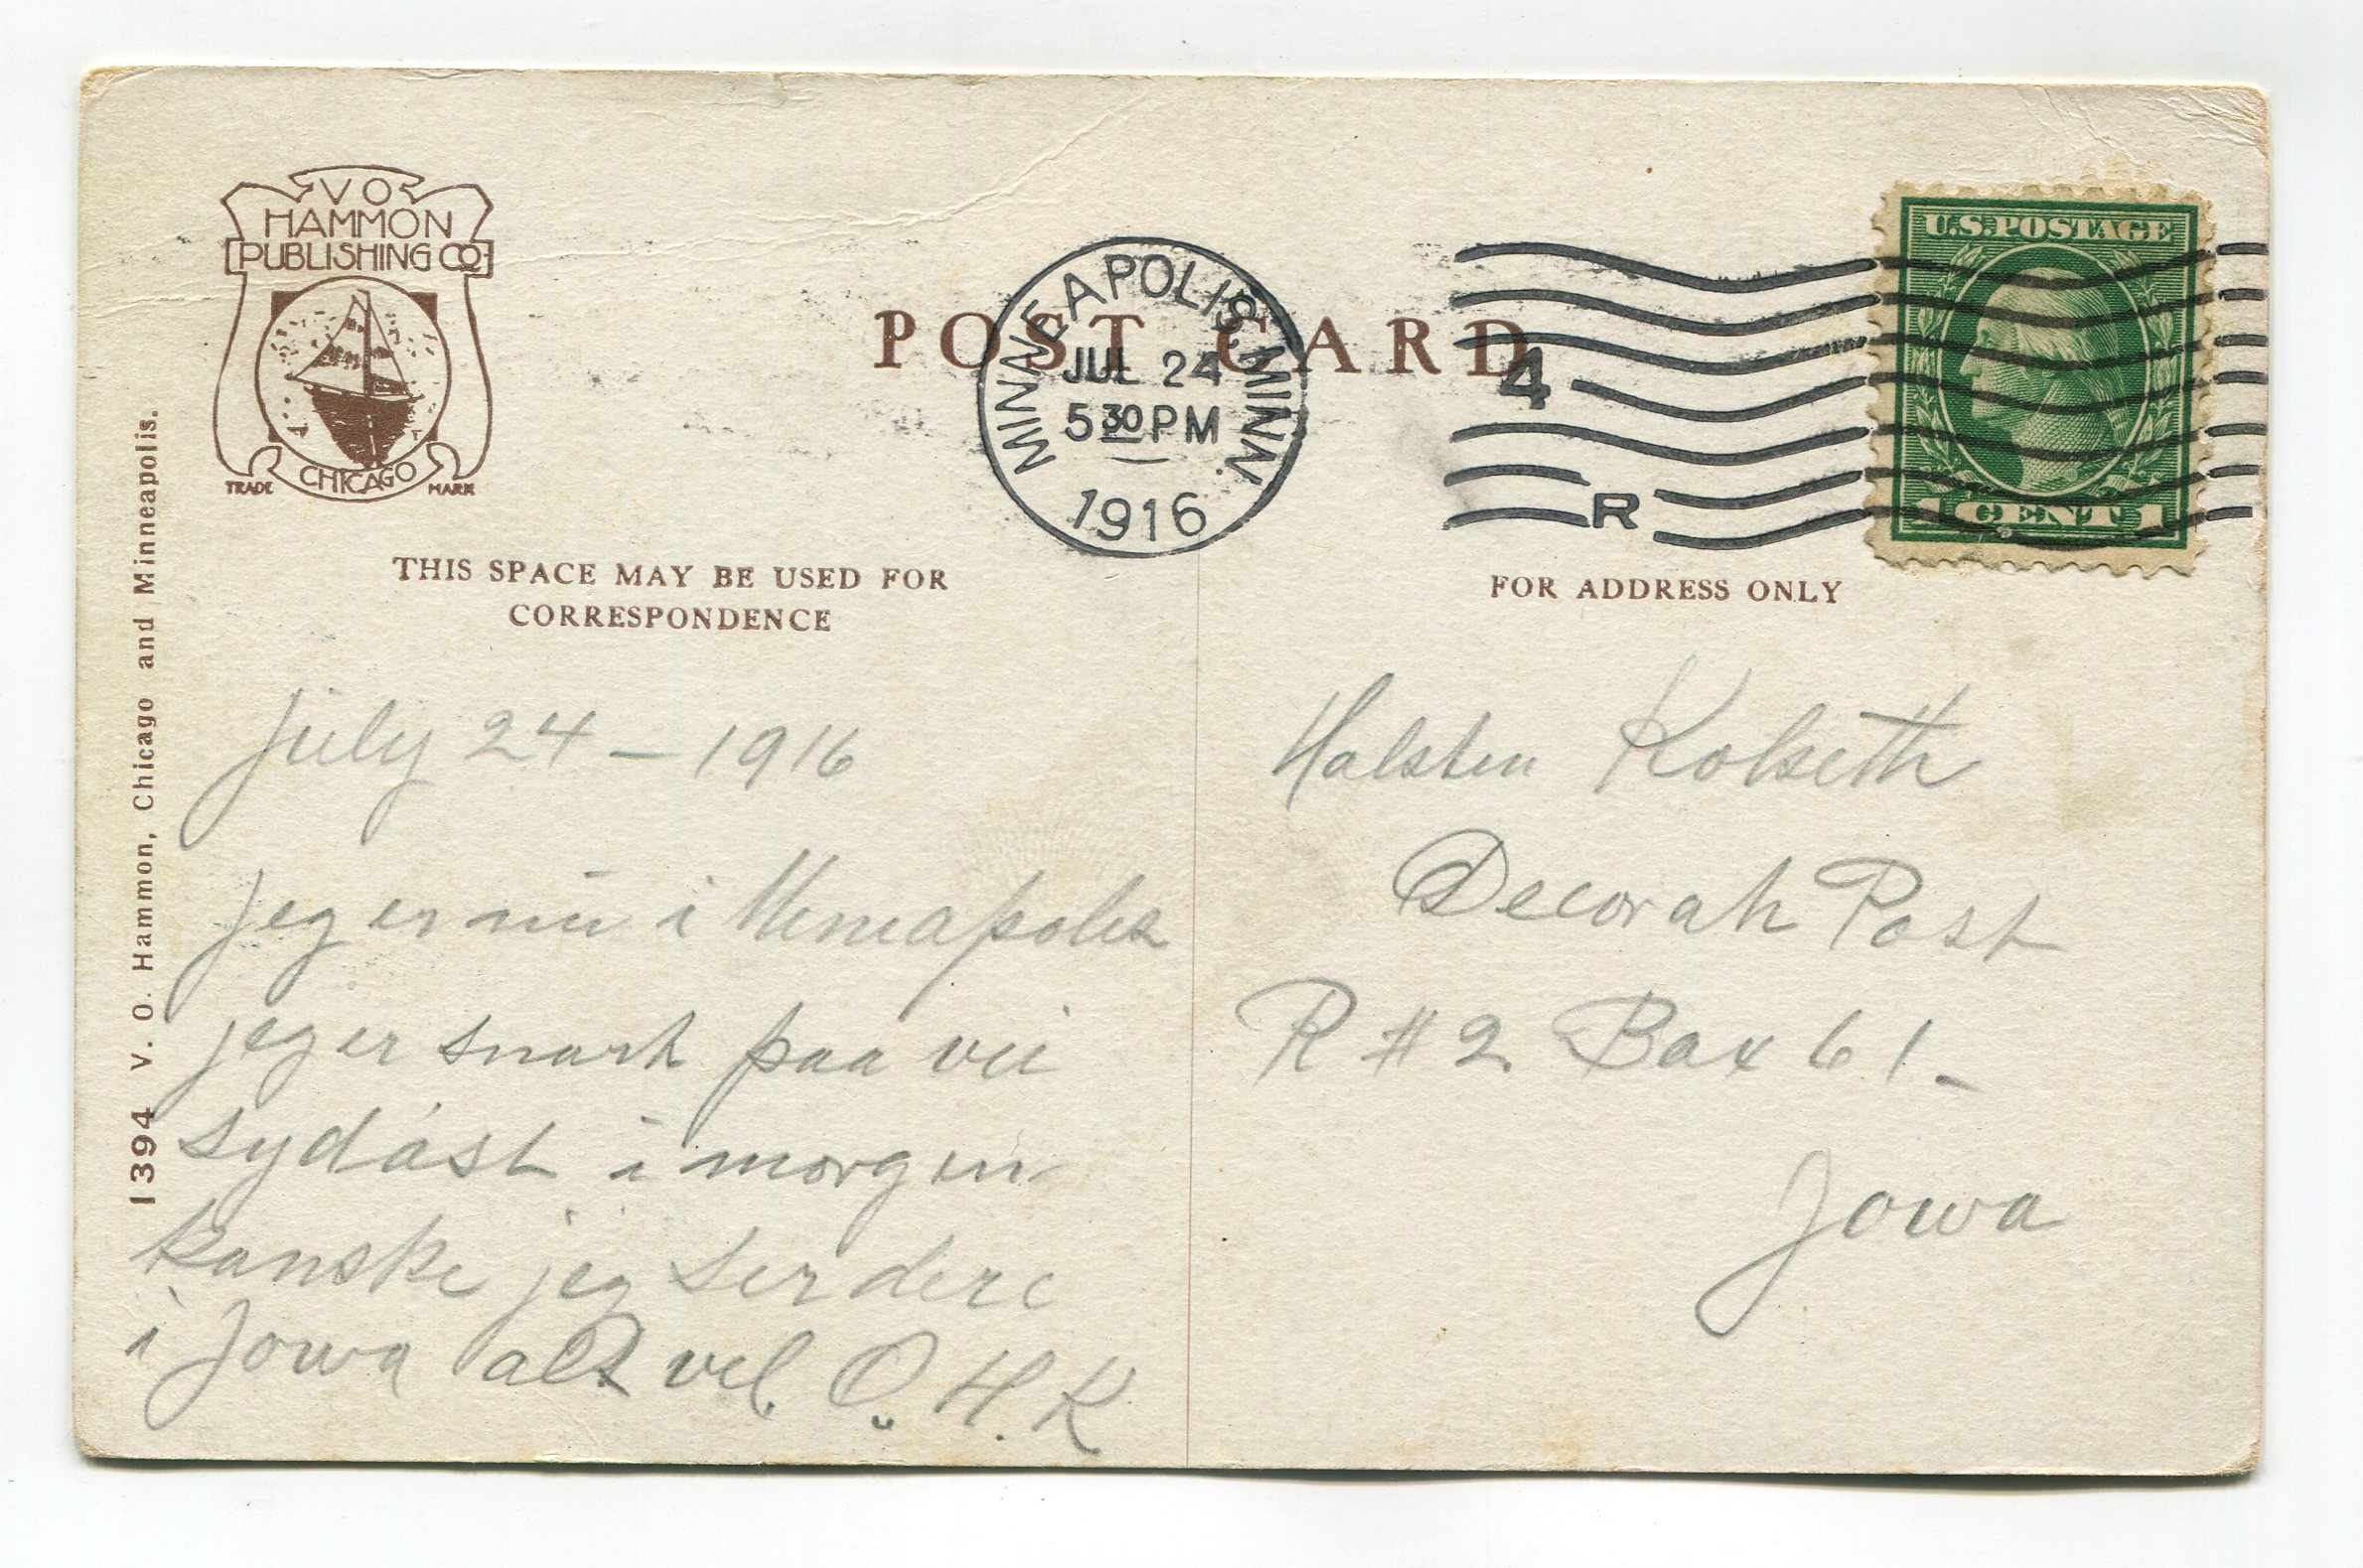 V O
HAMMON
PUBLISHING CO
CHICAGO
TRADE MARK
POST CARD
MINNEAPOLIS, MINN.
JUL 24
5 30 PM
1916
4
R
U.S. POSTAGE
1 CENT 1
THIS SPACE MAY BE USED FOR
CORRESPONDENCE
FOR ADDRESS ONLY
1394 V. O. Hammon, Chicago and Minneapolis.
July 24 – 1916
jeg er nu i Mineapolis
jeg er snart paa vei
sydóst i morgen
kanske jeg ser dere
i Jowa alt vel. O. H. K
Halsten Kolseth
Decorah Post
R # 2 Box 61 –
Jowa